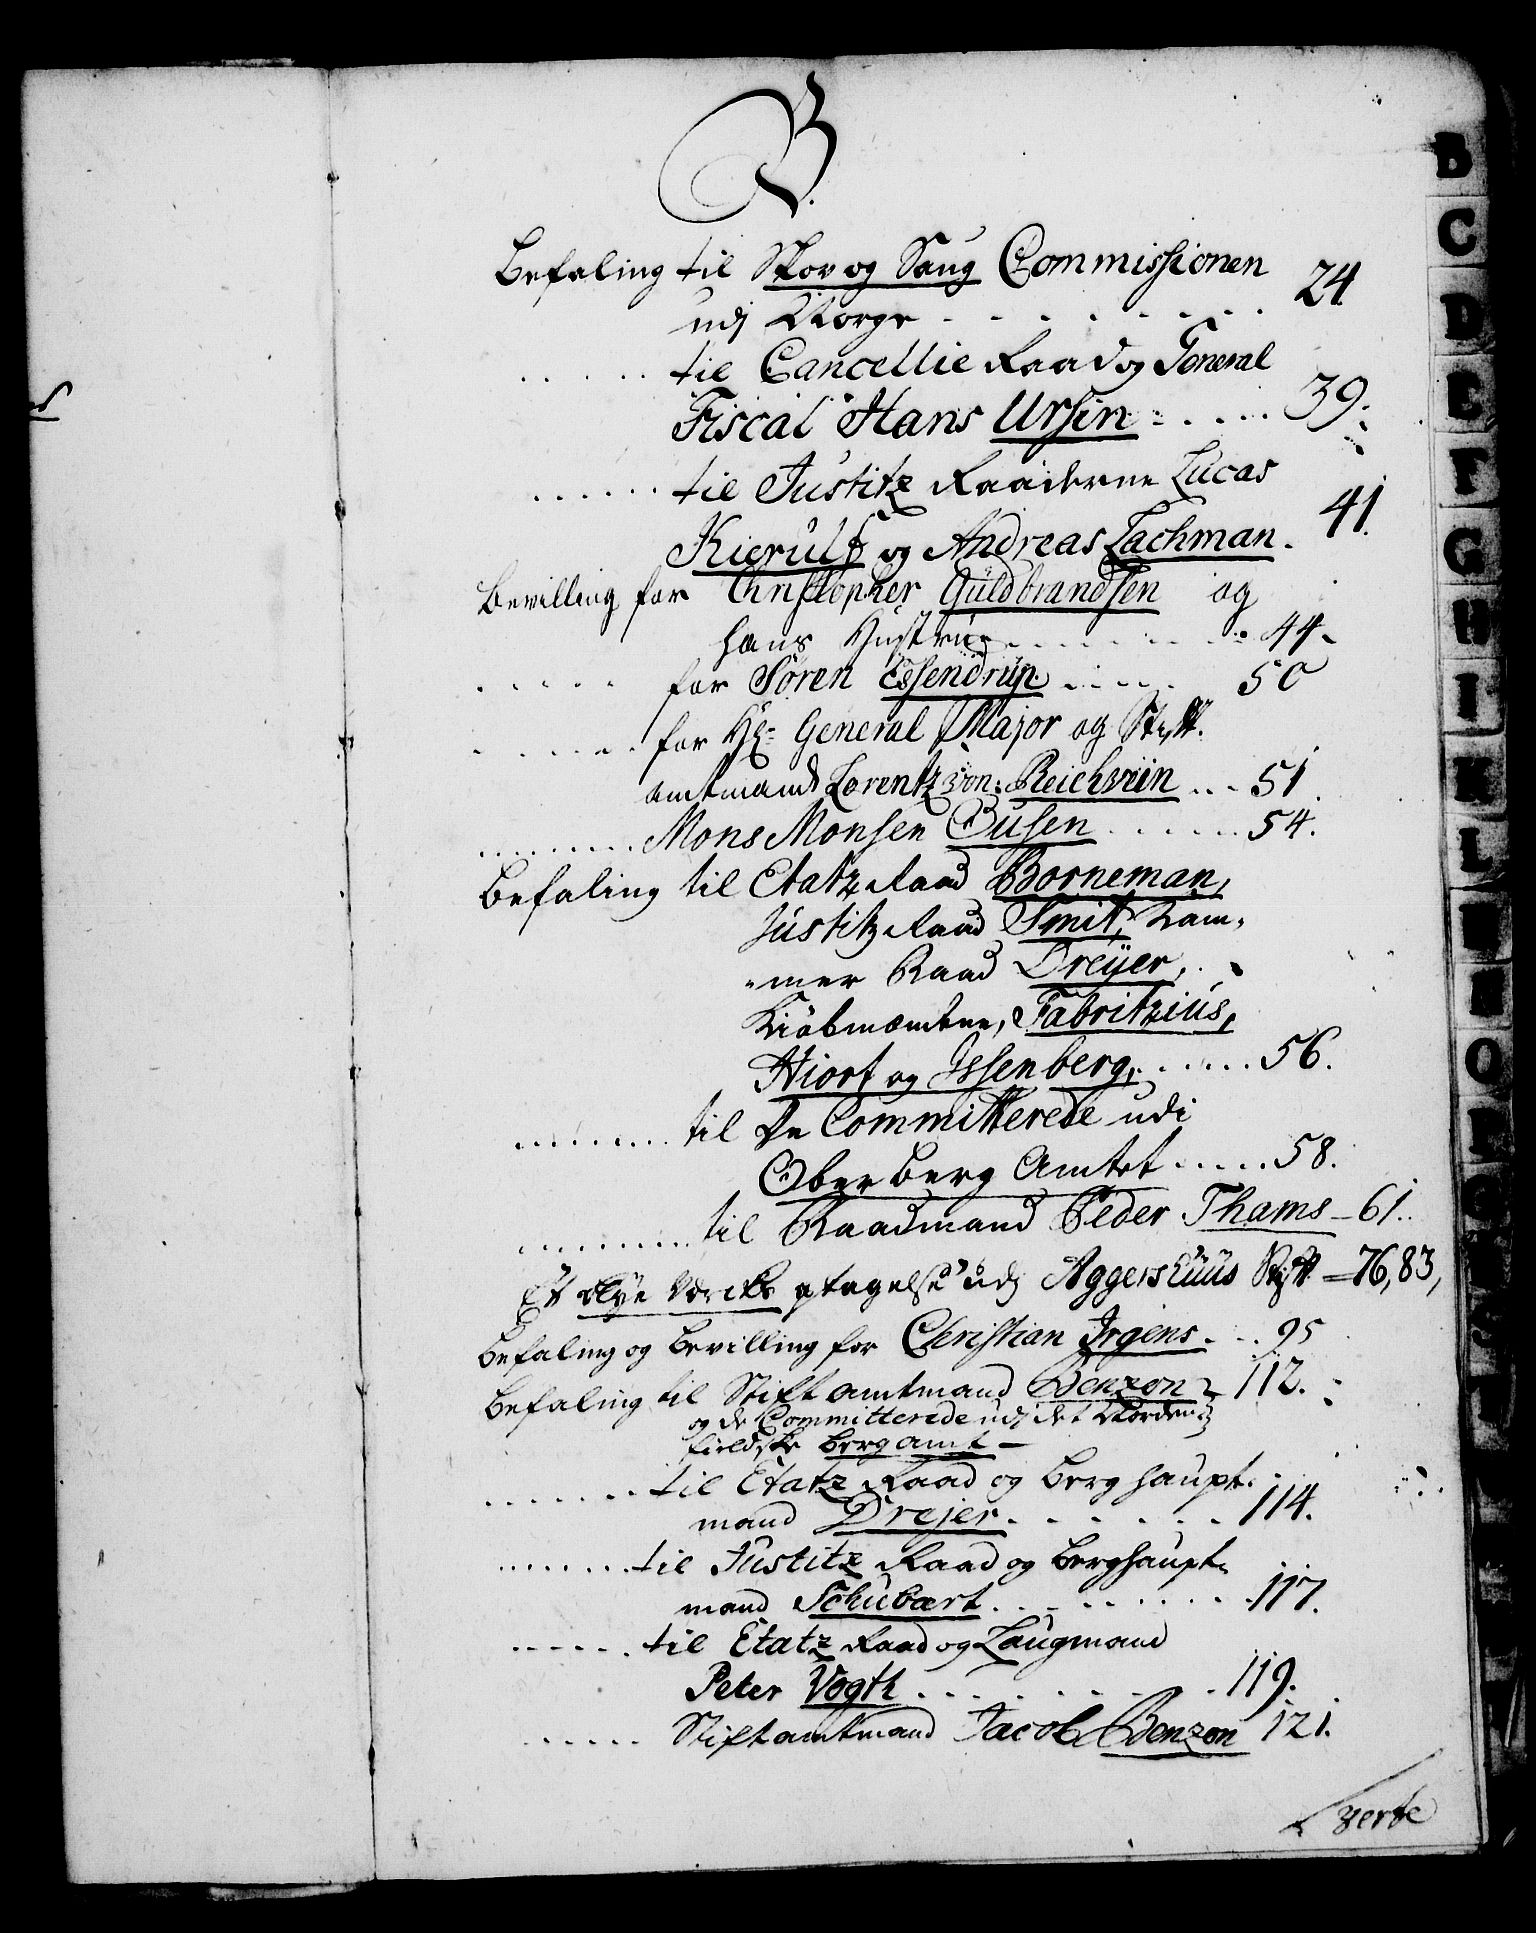 B.
Befaling til Skov og Saug Commissionen
udj Norge - - - - - - - - - 24
. . . . . . til Cancellie Raad og General
Fiscal Hans Ursin - . . . . 39.
. . . . . . til Justitz Raaderne Lucas
Kierulf og Andreas Tachman. 41.
Bevilling for Christopher Guldbrandsen og
hans Hustrue . . . . . . . . 44.
. . . . . for Sören Essendrup . . . . . 50
. . . . . . for Hr: General Major og Stift
amtmand Lorentz von Reichwein . . . 51.
. . . . . . . . . Mons Monsen Busen . . . . . . . 54.
Befaling til Etatz Raad Borneman,
Justitz Raad Smit, Kam-
-mer Raad Dreyer,
Kiöbmændene, Fabritzius,
Hiort og Issenberg, . . . . . . 56.
. . . . . . . . . til De Committerede udi
Ober Berg Amtet . . . . . 58.
. . . . . . . . . til Raadmand Peder Thams - 61.
Et Nye Værcks optagelse udj Aggershuus Stift = 76, 83,
Befaling og Bevilling for Christian Irgens . . . 95
Befaling til Stiftamtmand Benzon 112.
og de Committerede udj det Norden
fieldske Berg Amt -
. . . . . . . til Etatz Raad og Berg haupt-
mand Drejer . . . . . . 114.
. . . . . . . . til Justitz Raad og Berghaupt-
mand Schubært . . . . . . . . . 117.
. . . . . . til Etatz Raad og Laugmand
Peter Vogth . . . . . . . . 119.
. . . . . . Stiftamtmand Jacob Benzon 121.
verte
B
C
D
E
F
G
H
I
K
L
M
N
O
P